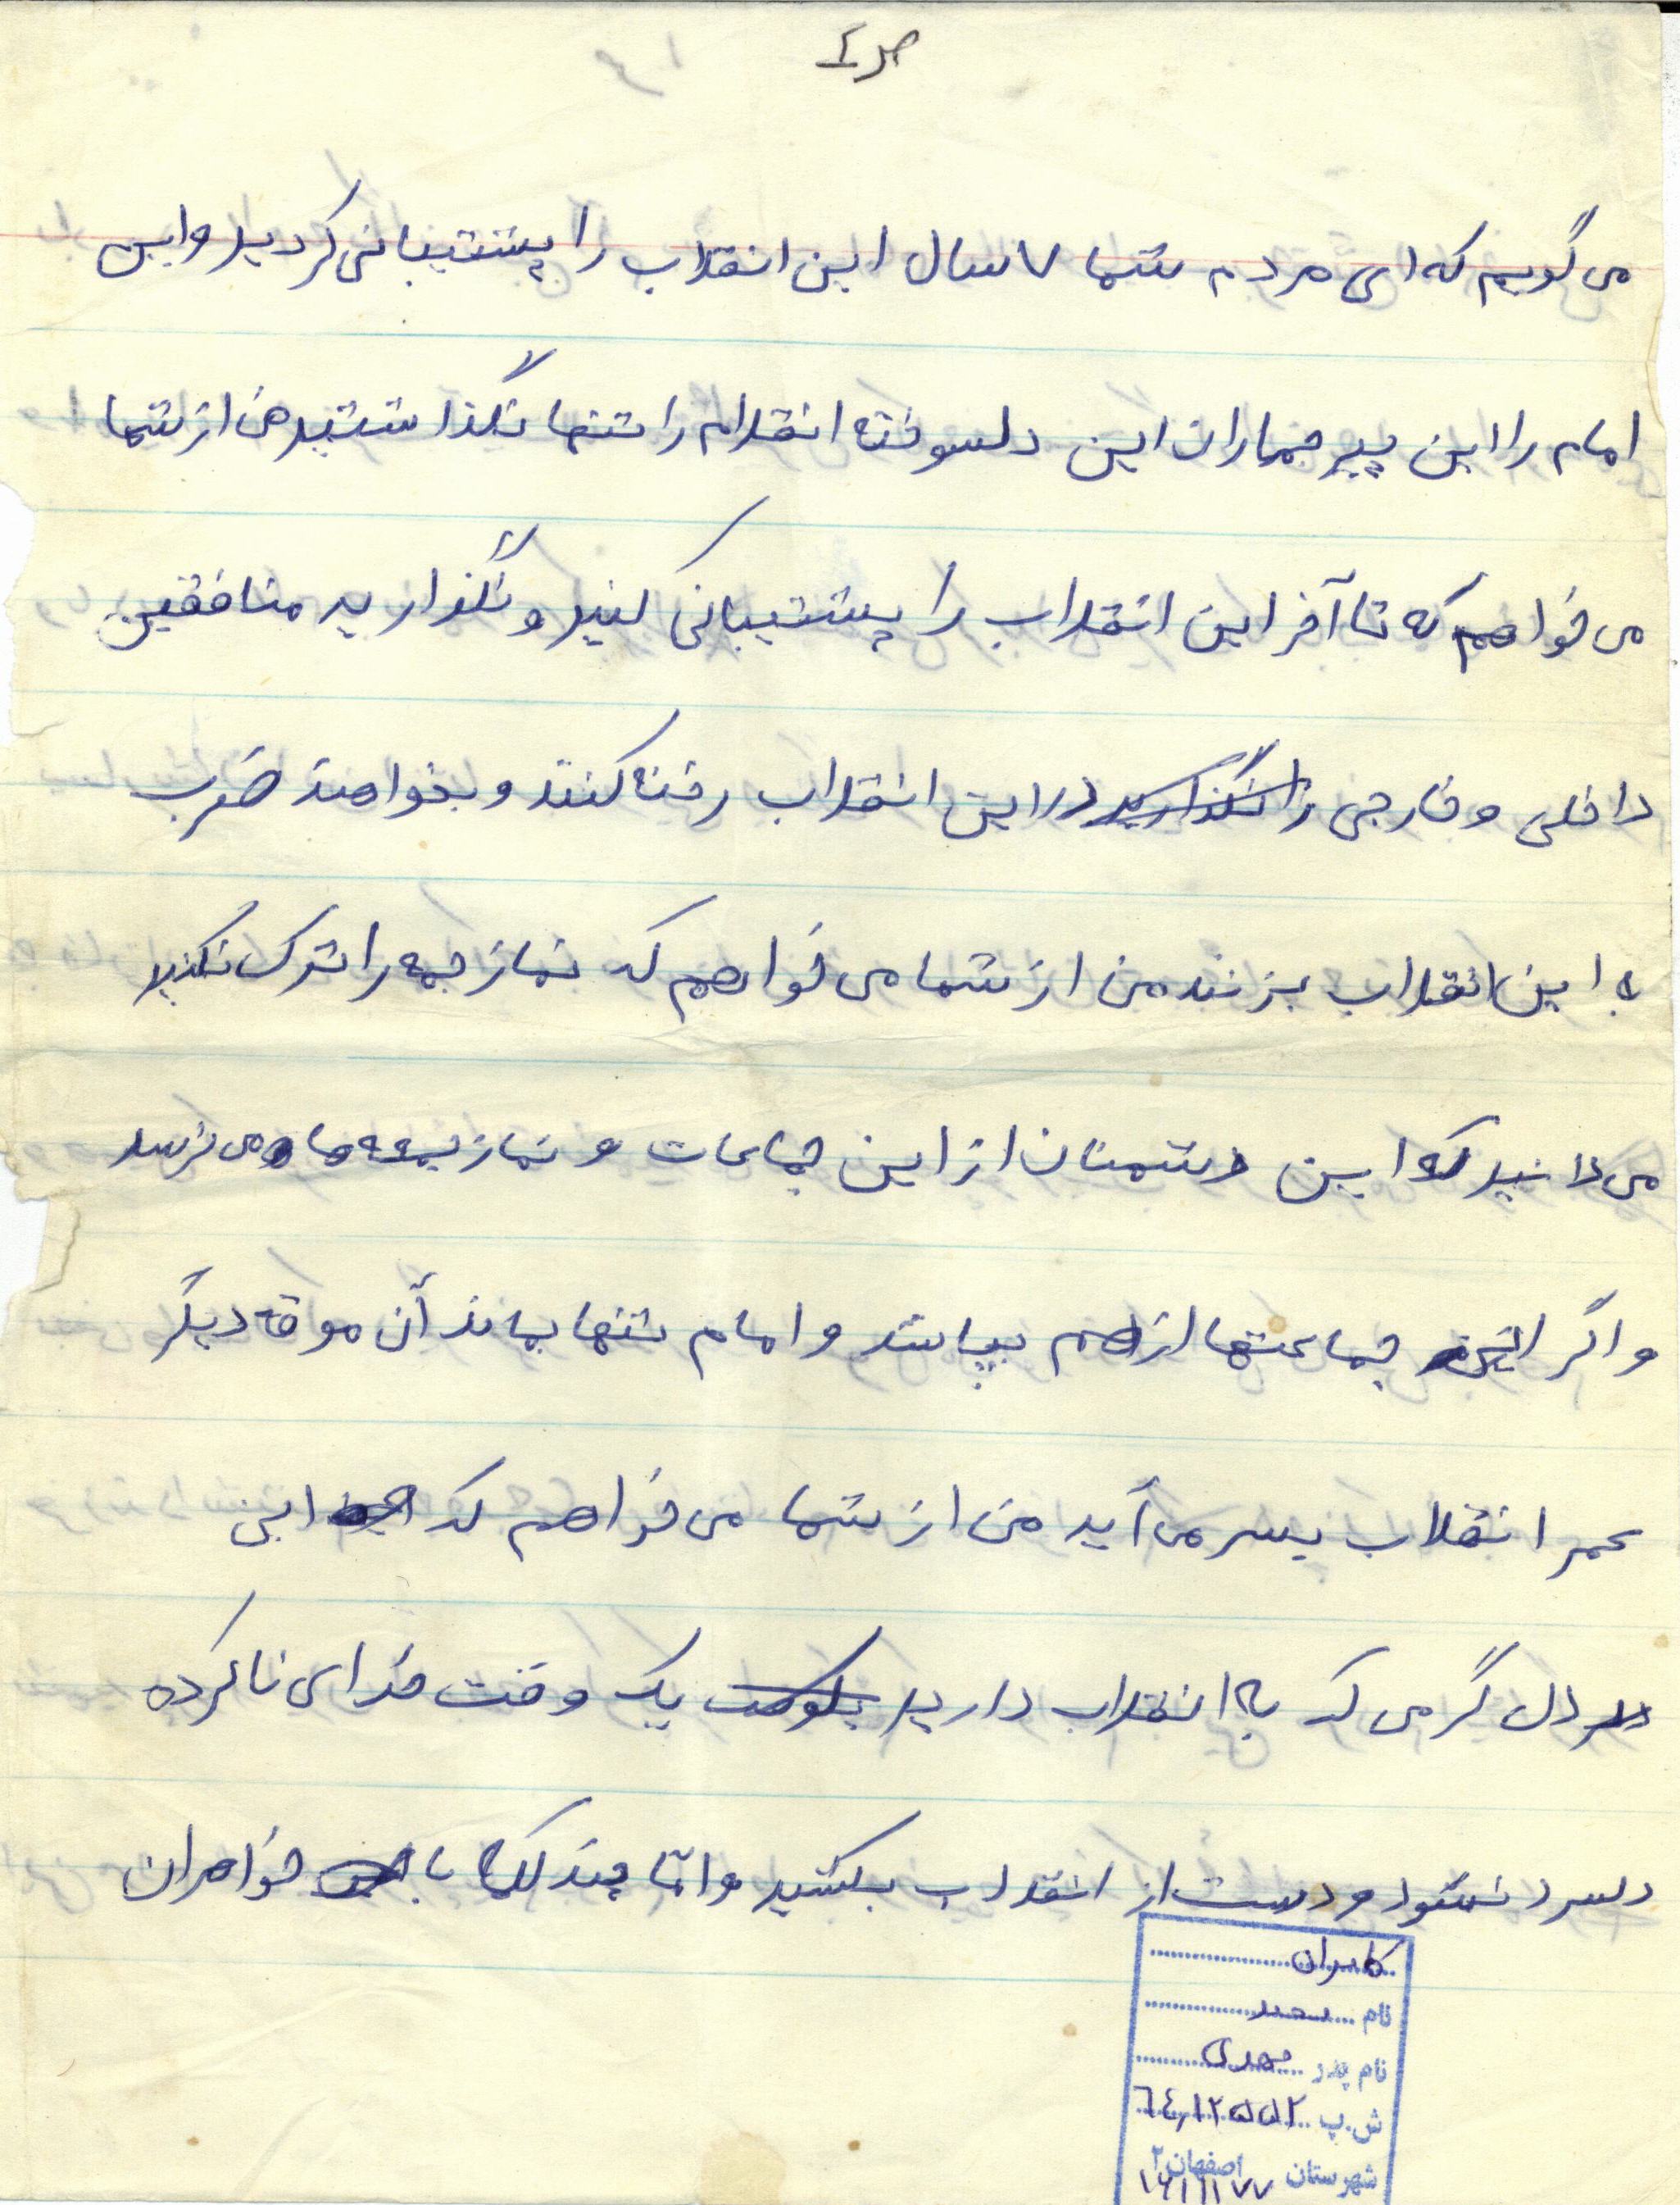 ص ۴
می گویم که ای مردم شما ۷ سال این انقلاب را پشتیبانی کردید و این
امام را این پیر جماران این دلسوخته انقلاب را تنها نگذاشتید من از شما
می خواهم که تا آخر این انقلاب را پشتیبانی کنید و نگذارید منافقین
داخلی و خارجی را نگذارید در این انقلاب رخنه کنند و بخواهند ضرب
به این انقلاب بزنند من از شما می خواهم که نماز جمعه را ترک نکنید
می دانید که این دشمنان از این جماعات و نماز جمعه ها می ترسد
و اگر این جماعتها از هم بپاشد و امام تنها بماند آن موقه دیگر
عمر انقلاب بسر می آید من از شما می خواهم که این
دل گرمی که به انقلاب دارید یک وقت خدای ناکرده
دلسرد نشود و دست از انقلاب بکشید و اما چند کلمه با خواهران
کامران
نام
نام پدر مهدی
ش.پ ٦٤١٢٥٥٢
شهرستان اصفهان ۲